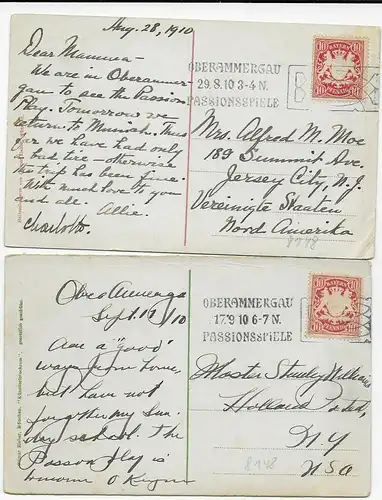 Aug. 28, 1910
Dear Mamma—
We are in Oberammer-
gau to see the Passion
Play. Tomorrow we
return to Munich. Thus
far we have had only
a bad tire – otherwise
the trip has been fine.
With much love to you
and all. Allie.
Charlotte.
OBERAMMERGAU
29.8.10 3-4 N.
PASSIONSSPIELE
BAYERN
10 10
PFENNIG
Mrs. Alfred M. Moe
189 Summit Ave.
Jersey City, N.J.
Vereinigte Staaten
Nord Amerika
8148
Sept. 17/10
Am a "good"
ways from home,
but have not
forgotten my Sun-
day school. The
Passion Play is
OBERAMMERGAU
17.9 10 6-7 N.
PASSIONSSPIELE
BAYERN
10 10
PFENNIG
Master Stanley Williams
Holland Patent,
N Y
USA
8148